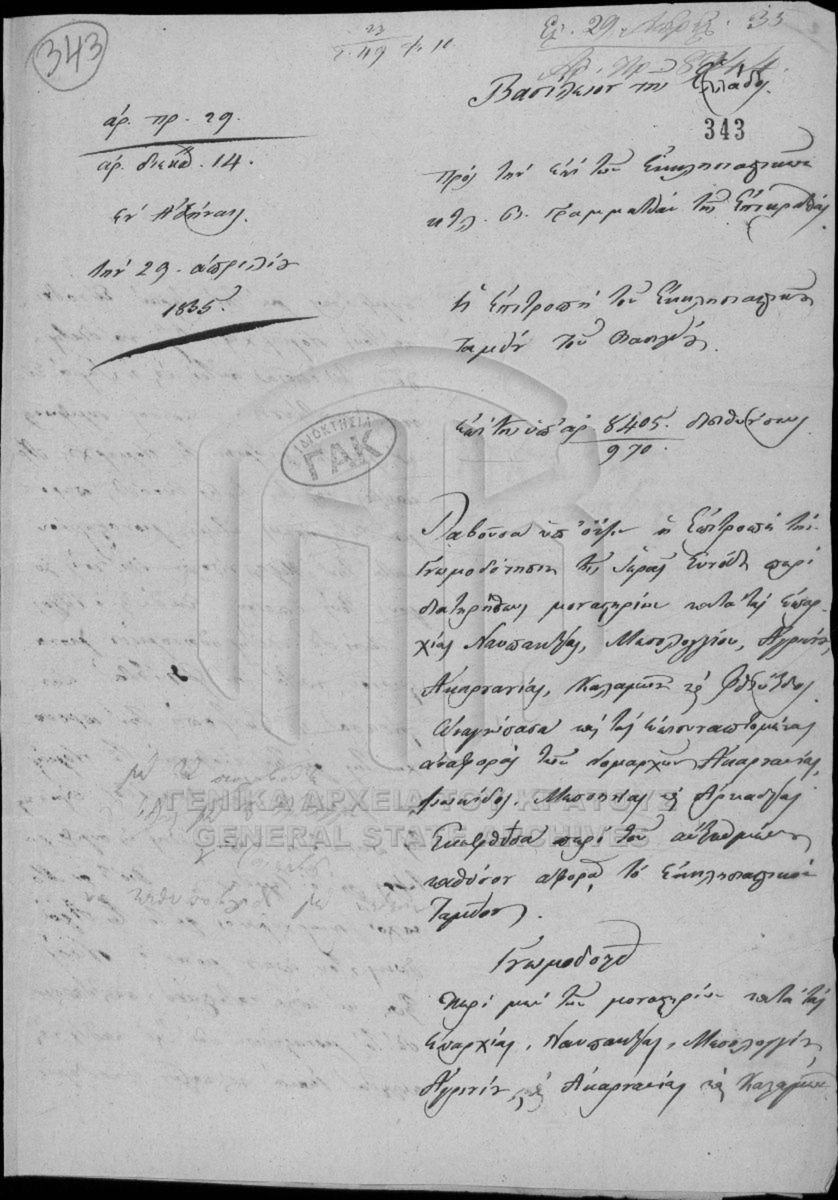 343
Ελ. 29 Απριλ. 35
Αρ. Πρ.
Βασίλειον της Ελλάδος.
343
αρ. πρ. 29.
αρ. διεκπ. 14.
Εν Αθήναις
την 29 απριλίου
1835.
Προς την επί των Εκκλησιαστικών
κτλ. Β. Γραμματείαν της Επικρατείας
Η Επιτροπή του Εκκλησιαστικού
Ταμείου του Βασιλείου.
Επί της υπ' αρ. 8405. διευθύνσεως
970.
ΙΔΙΟΚΤΗΣΙΑ
ΓΑΚ
Λαβούσα υπ' όψιν η Επιτροπή την
Γνωμοδότησιν της Ιεράς Συνόδου περί
διατηρήσεως μοναστηρίων κατά τας Επαρ-
χίας Ναυπακτίας, Μεσολογγίου, Αγρινίου,
Ακαρνανίας, Καλαμών και Φθιώτιδος.
Αναγνώσασα και τας επισυναπτομένας
αναφοράς των Νομαρχών Ακαρνανίας,
Φωκίδος, Μεσσηνίας και Αρκαδίας
Σκεφθείσα περί του αντικειμένου
καθόσον αφορά το Εκκλησιαστικόν
Ταμείον.
Γνωμοδοτεί
Περί μεν των μοναστηρίων κατά τας
Επαρχίας, Ναυπακτίας, Μεσολογγίου,
Αγρινίου, και Ακαρνανίας και Καλαμών
ΓΕΝΙΚΑ ΑΡΧΕΙΑ ΤΟΥ ΚΡΑΤΟΥΣ
GENERAL STATE ARCHIVES